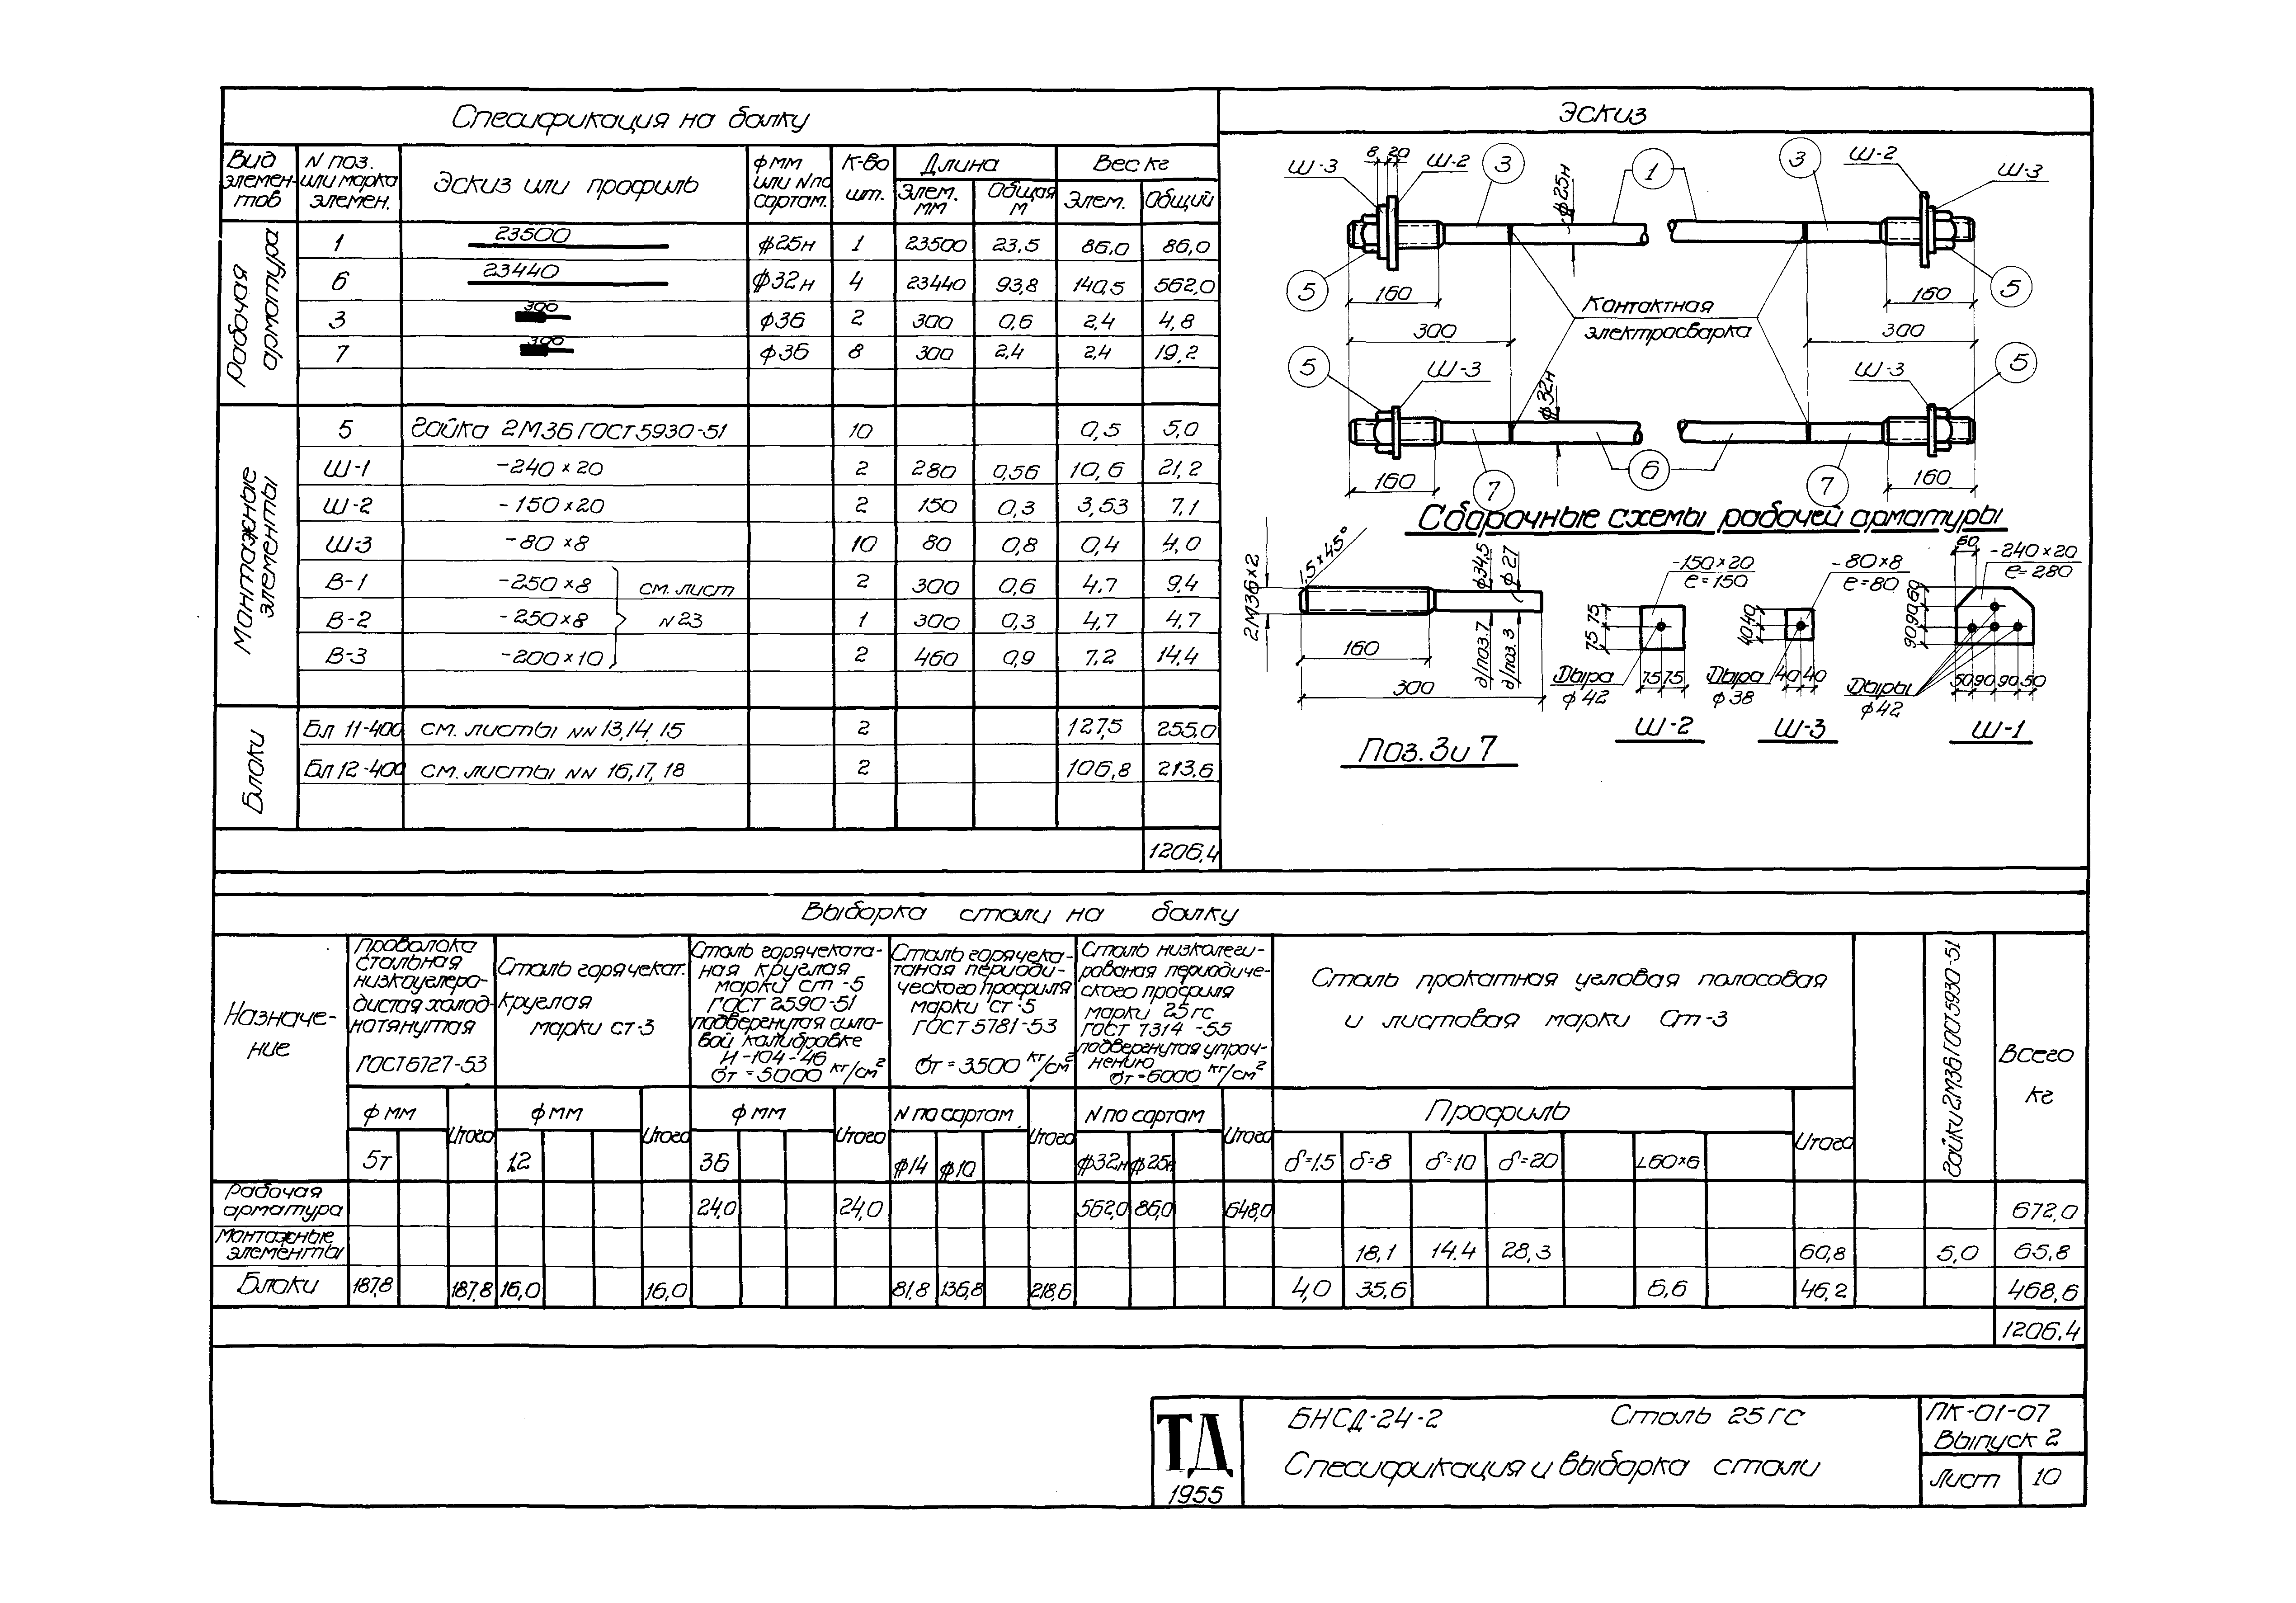 Спецификация на балку
Вид элемен- тов | N поз. или марка элемен. | Эскиз или профиль | ф мм или N по сортам. | К-во шт. | Длина | Вес кг
Элем. мм | Общая м | Элем. | Общий
Рабочая арматура
1 | 23500 | ф25н | 1 | 23500 | 23,5 | 86,0 | 86,0
6 | 23440 | ф32н | 4 | 23440 | 93,8 | 140,5 | 562,0
3 | 300 | ф36 | 2 | 300 | 0,6 | 2,4 | 4,8
7 | 300 | ф36 | 8 | 300 | 2,4 | 2,4 | 19,2
Монтажные элементы
5 | Гайка 2М36 ГОСТ 5930-51 | 10 | 0,5 | 5,0
Ш-1 | -240×20 | 2 | 280 | 0,56 | 10,6 | 21,2
Ш-2 | -150×20 | 2 | 150 | 0,3 | 3,53 | 7,1
Ш-3 | -80×8 | 10 | 80 | 0,8 | 0,4 | 4,0
В-1 | -250×8 | см. лист | 2 | 300 | 0,6 | 4,7 | 9,4
В-2 | -250×8 | N 23 | 1 | 300 | 0,3 | 4,7 | 4,7
В-3 | -200×10 | 2 | 460 | 0,9 | 7,2 | 14,4
Блоки
Бл 11-400 | см. листы NN 13,14,15 | 2 | 127,5 | 255,0
Бл 12-400 | см. листы NN 16,17,18 | 2 | 106,8 | 213,6
1206,4
Эскиз
Ш-3 8 20 Ш-2 3 1 ф25н 3 Ш-2 Ш-3
5 160 160 5
Контактная
электросварка
300 300
5 Ш-3 ф32н Ш-3 5
160 7 6 7 160
Сборочные схемы рабочей арматуры
2М36×2 1,5×45° ф34,5 ф27
160
300
д/поз.7 д/поз.3
Поз. 3 и 7
-150×20
ℓ=150
75 75
Дыра
ф42
75 75
Ш-2
-80×8
ℓ=80
40 40
Дыра
ф38
40 40
Ш-3
60 -240×20
ℓ=280
90 90 60
Дыры
ф42
50 90 90 50
Ш-1
Выборка стали на балку
Назначе-
ние
Проволока
стальная
низкоуглеро-
дистая холод-
нотянутая
ГОСТ 6727-53
Сталь горячекат.
круглая
марки ст-3
Сталь горячеката-
ная круглая
марки ст-5
ГОСТ 2590-51
подвергнутая сило-
вой калибровке
И-104-46
σт=5000 кг/см²
Сталь горячека-
таная периоди-
ческого профиля
марки ст-5
ГОСТ 5781-53
σт=3500 кг/см²
Сталь низколеги-
рованая периодиче-
ского профиля
марки 25гс
ГОСТ 7314-55
подвергнутая упроч-
нению
σт=6000 кг/см²
Сталь прокатная угловая полосовая
и листовая марки Ст-3
Гайки 2М36 ГОСТ 5930-51
Всего
кг
ф мм | Итого | ф мм | Итого | ф мм | Итого | N по сортам | Итого | N по сортам | Итого | Профиль | Итого
5т | 12 | 36 | ф14 | ф10 | ф32н | ф25н | δ=1.5 | δ=8 | δ=10 | δ=20 | ∟60×6
Рабочая арматура | 24,0 | 24,0 | 562,0 | 86,0 | 648,0 | 672,0
Монтажные элементы | 18,1 | 14.4 | 28,3 | 60,8 | 5,0 | 65,8
Блоки | 187,8 | 187,8 | 16,0 | 16,0 | 81,8 | 136,8 | 218,6 | 4,0 | 35,6 | 6,6 | 46,2 | 468,6
1206,4
ТД
1955
БНСД-24-2 Сталь 25ГС
Спецификация и выборка стали
ПК-01-07
Выпуск 2
Лист 10